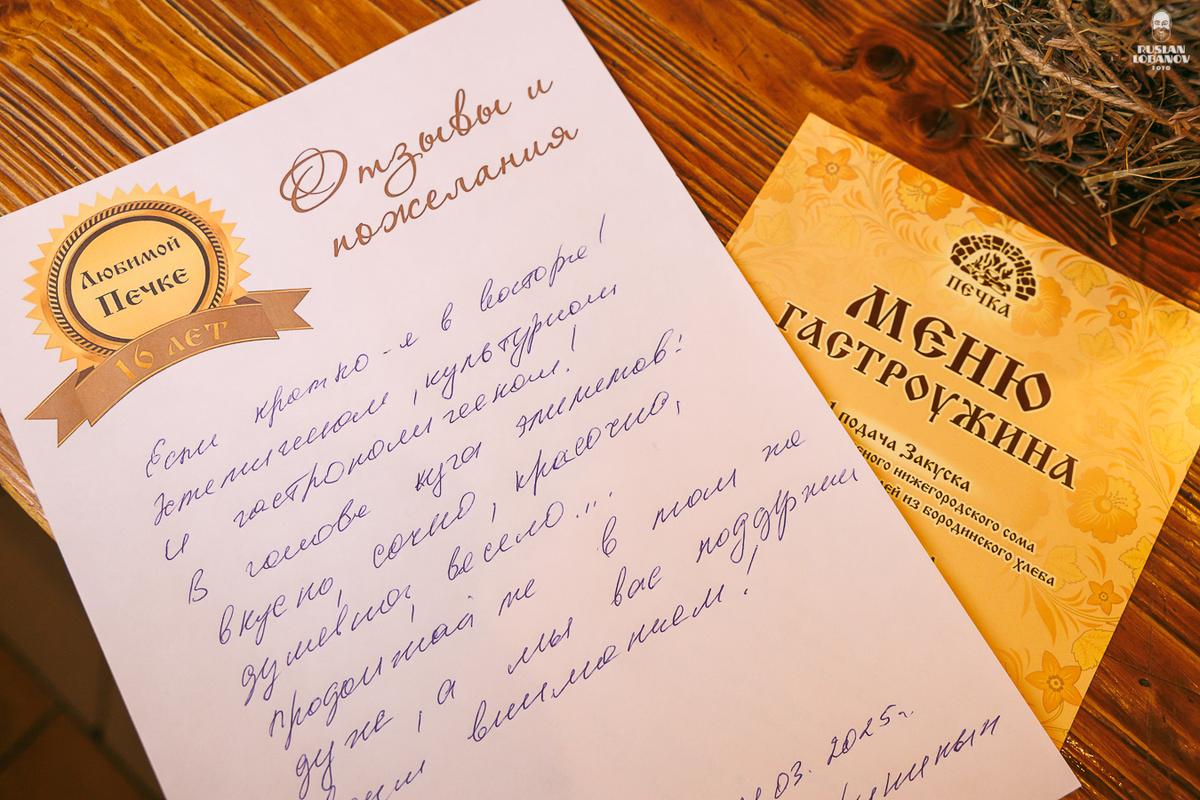 Отзывы и
пожелания
Любимой
Печке
16 лет
Если кратко - я в восторге!
Эстетическом, культурном
и гастрономическом!
В голове куча эпитетов:
вкусно, сочно, красочно,
душевно, весело...
продолжайте в том же
духе, а мы вас поддержим
вниманием!
03. 2025г.
ПЕЧКА
МЕНЮ
ГАСТРОУЖИНА
подача Закуска
нижегородского сома
из бородинского хлеба
RUSLAN
LOBANOV
FOTO